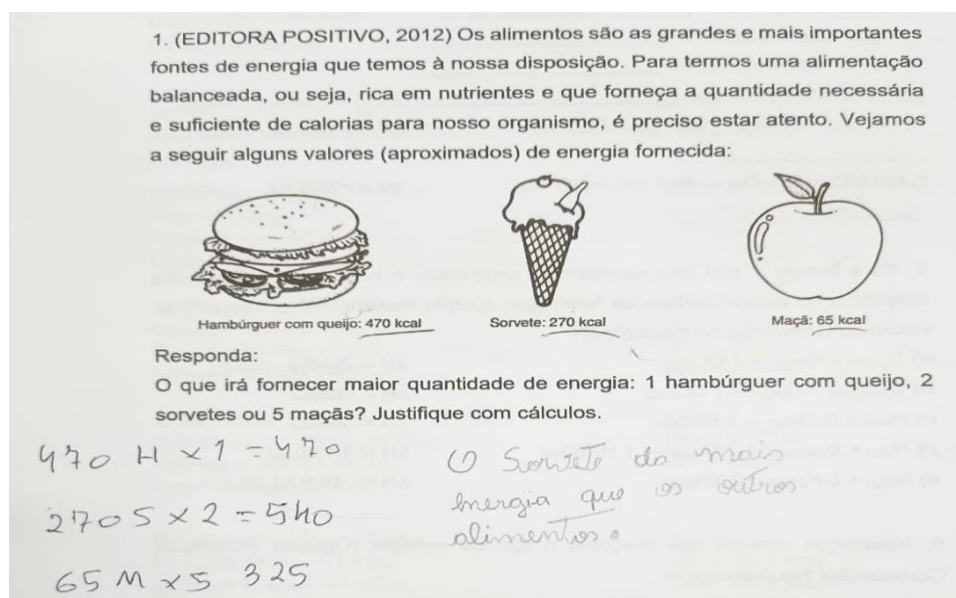 1. (EDITORA POSITIVO, 2012) Os alimentos são as grandes e mais importantes
fontes de energia que temos à nossa disposição. Para termos uma alimentação
balanceada, ou seja, rica em nutrientes e que forneça a quantidade necessária
e suficiente de calorias para nosso organismo, é preciso estar atento. Vejamos
a seguir alguns valores (aproximados) de energia fornecida:
Hambúrguer com queijo: 470 kcal
Sorvete: 270 kcal
Maçã: 65 kcal
Responda:
O que irá fornecer maior quantidade de energia: 1 hambúrguer com queijo, 2
sorvetes ou 5 maçãs? Justifique com cálculos.
470 H x 1 = 470
270 S x 2 = 540
65 M x 5 325
O Sorvete da mais
energia que os outros
alimentos.